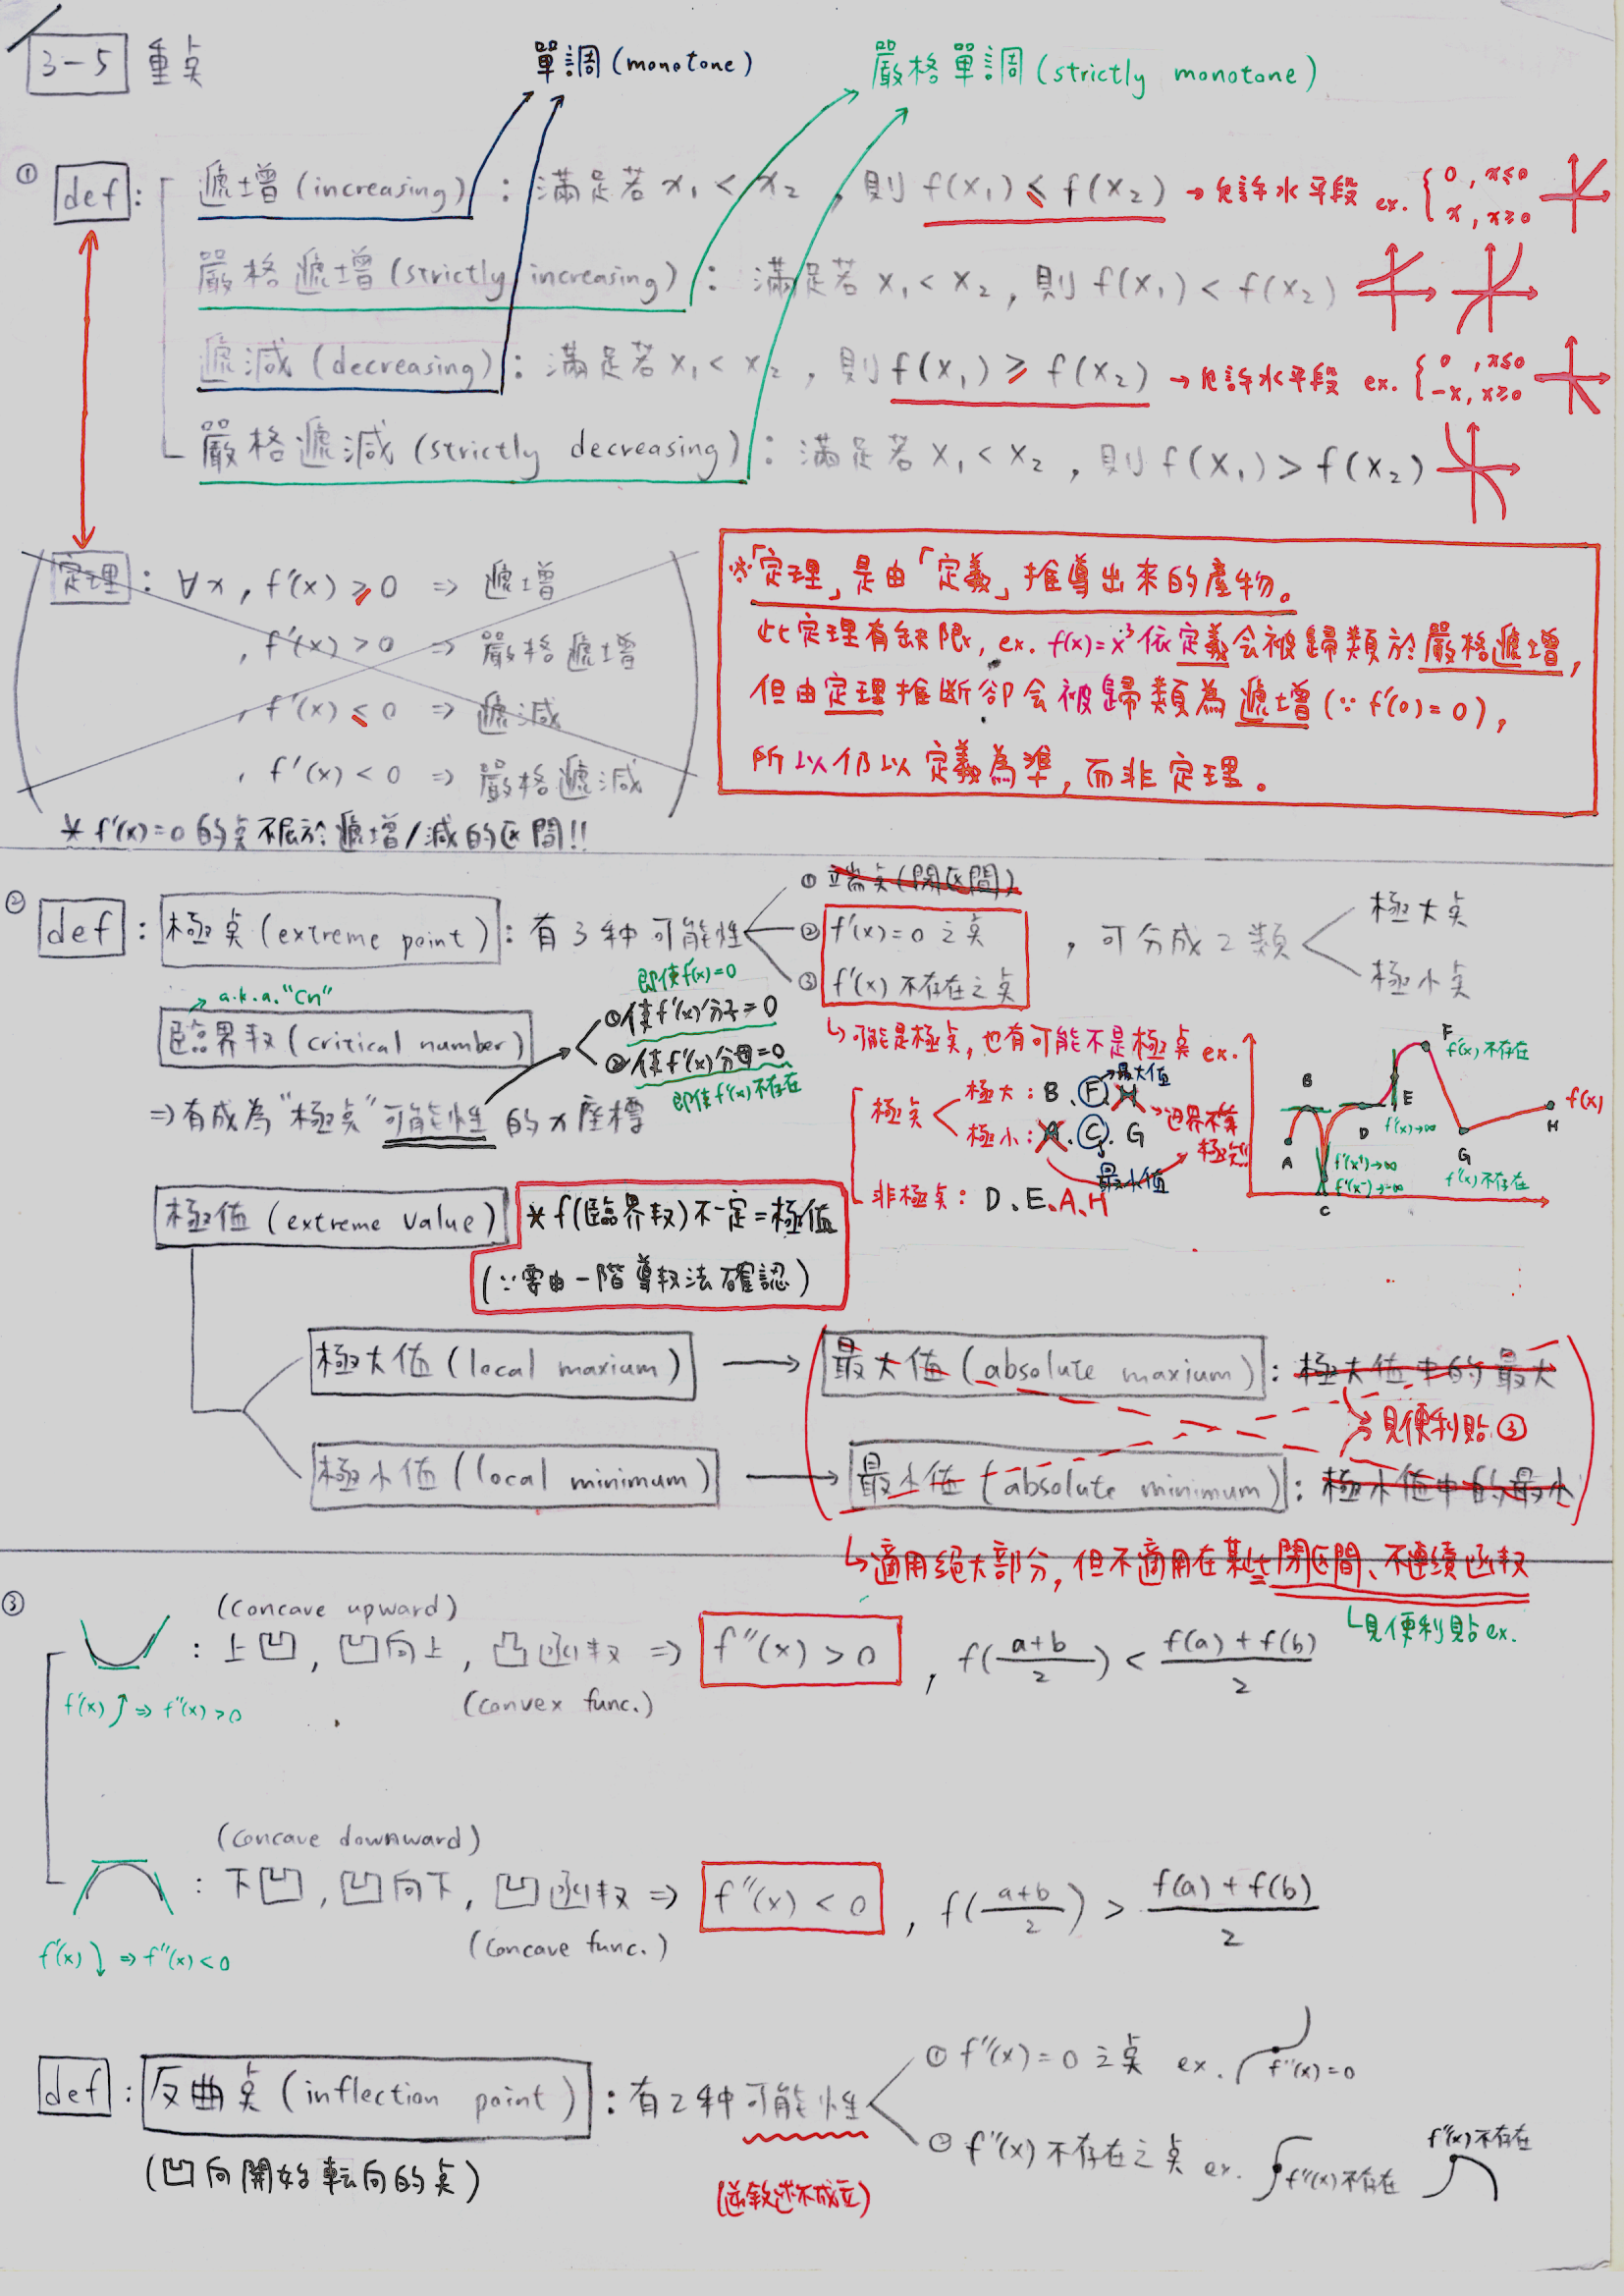 3-5 重点
單調(monotone)
嚴格單調(strictly monotone)
① def: 遞增(increasing): 滿足若 x₁ < x₂, 則 f(x₁) ≤ f(x₂) → 允許水平段 ex. { 0, x≤0
x, x≥0
嚴格遞增(strictly increasing): 滿足若 x₁ < x₂, 則 f(x₁) < f(x₂)
遞減(decreasing): 滿足若 x₁ < x₂, 則 f(x₁) ≥ f(x₂) → 允許水平段 ex. { 0, x≤0
-x, x≥0
嚴格遞減(strictly decreasing): 滿足若 x₁ < x₂, 則 f(x₁) > f(x₂)
定理: ∀x, f'(x) ≥ 0 ⇒ 遞增
, f'(x) > 0 ⇒ 嚴格遞增
, f'(x) ≤ 0 ⇒ 遞減
, f'(x) < 0 ⇒ 嚴格遞減
※「定理」是由「定義」推導出來的產物。
此定理有缺限, ex. f(x)=x³ 依定義会被歸類於嚴格遞增,
但由定理推斷卻会被歸類為遞增(∵ f'(0)=0),
所以仍以定義為準, 而非定理。
* f'(x)=0 的点不屬於遞增/減的区間!!
② def: 極点(extreme point): 有3種可能性
① 端点(閉区間)
② f'(x)=0 之点
③ f'(x) 不存在之点
, 可分成2類
極大点
極小点
↳可能是極点, 也有可能不是極点 ex.
a.k.a. "Cn"
臨界数(critical number)
即使f'(x)=0
①使f'(x)分子=0
②使f'(x)分母=0
即使f'(x)不存在
⇒有成為"極点"可能性的x座標
極点
極大: B、F、H
→最大值
極小: A、C、G
最小值
边界不算
極点!!
非極点: D、E、A、H
A
B
C
D
E
F
G
H
f(x)
f'(x)不存在
f'(x)→∞
f'(x⁺)→∞
f'(x⁻)→-∞
f'(x)不存在
極值(extreme value)
* f(臨界数)不一定=極值
(∵需由一階導数法確認)
極大值(local maxium) → 最大值(absolute maxium): 極大值中的最大
→見便利貼③
極小值(local minimum) → 最小值(absolute minimum): 極小值中的最小
↳適用絕大部分, 但不適用在某些閉区間、不連續函数
↳見便利貼ex.
③ (concave upward)
: 上凹, 凹向上, 凸函数 ⇒ f''(x) > 0, f((a+b)/2) < (f(a)+f(b))/2
f'(x)↗ ⇒ f''(x)>0
(convex func.)
(concave downward)
: 下凹, 凹向下, 凹函数 ⇒ f''(x) < 0, f((a+b)/2) > (f(a)+f(b))/2
f'(x)↘ ⇒ f''(x)<0
(concave func.)
def: 反曲点(inflection point): 有2種可能性
① f''(x)=0 之点 ex. f''(x)=0
② f''(x) 不存在之点 ex. f''(x)不存在
f''(x)不存在
(凹向開始転向的点)
(逆敘述不成立)